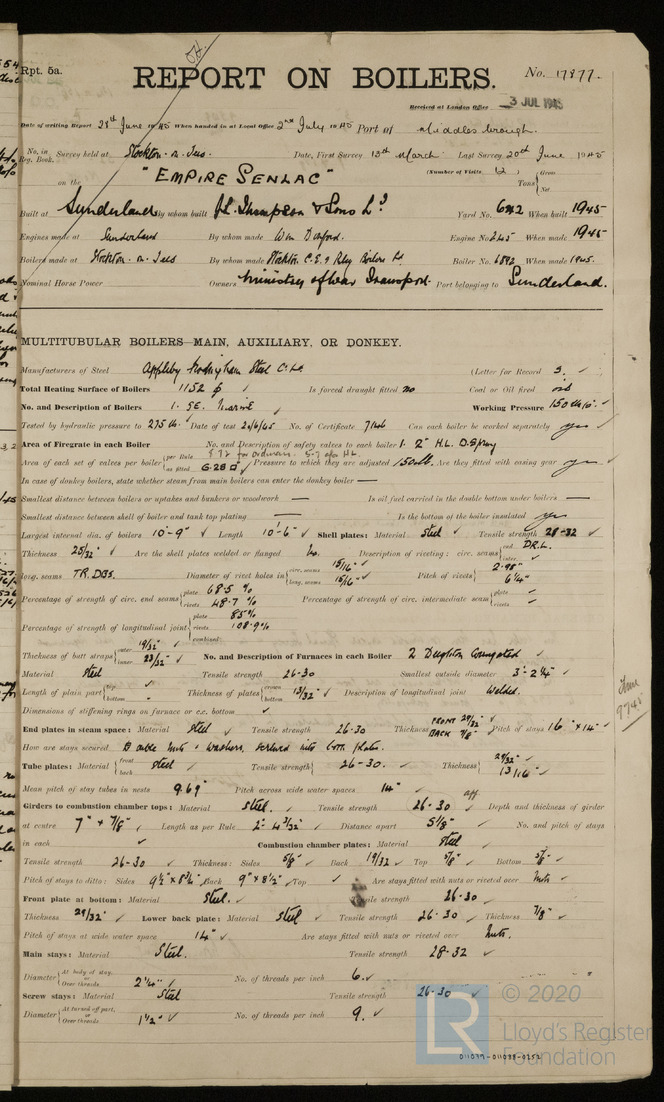 Rpt. 5a.
REPORT ON BOILERS.
No. 17877.
Received at London Office 3 JUL 1945
Date of writing Report 28th June 1945 When handed in at Local Office 2nd July 1945 Port of Middlesbrough.
No. in Reg. Book. Survey held at Stockton-n-Tees Date, First Survey 13th March Last Survey 20th June 1945
(Number of Visits 12)
on the "EMPIRE SENLAC" Tons { Gross Net
Built at Sunderland By whom built J.L. Thompson & Sons Ld Yard No. 642 When built 1945
Engines made at Sunderland By whom made Wm Doxford. Engine No 245 When made 1945
Boilers made at Stockton-n-Tees By whom made Stockton C.E. & Riley Boilers Ld Boiler No. 6892 When made 1945.
Nominal Horse Power Owners Ministry of War Transport. Port belonging to Sunderland.
MULTITUBULAR BOILERS—MAIN, AUXILIARY, OR DONKEY.
Manufacturers of Steel Appleby Frodingham Steel C. Ld (Letter for Record S. ✓
Total Heating Surface of Boilers 1152 ✓ Is forced draught fitted no Coal or Oil fired oil
No. and Description of Boilers 1. SE. Marine Working Pressure 150 lbs/☐" ✓
Tested by hydraulic pressure to 275 lb. ✓ Date of test 20/6/45 No. of Certificate Can each boiler be worked separately yes ✓
Area of Firegrate in each Boiler No. and Description of safety valves to each boiler 1. 2" H.L. D.Spring
Area of each set of valves per boiler { per Rule 5.7 for H.L.
as fitted 6.28 ☐" ✓ Pressure to which they are adjusted 150 lb. Are they fitted with easing gear yes ✓
In case of donkey boilers, state whether steam from main boilers can enter the donkey boiler —
Smallest distance between boilers or uptakes and bunkers or woodwork — Is oil fuel carried in the double bottom under boilers —
Smallest distance between shell of boiler and tank top plating — Is the bottom of the boiler insulated yes
Largest internal dia. of boilers 10'-9" ✓ Length 10'-6" ✓ Shell plates: Material Steel ✓ Tensile strength 28-32 ✓
Thickness 25/32" ✓ Are the shell plates welded or flanged No. Description of riveting: circ. seams { end DR.L. inter. ✓
long. seams TR.DBS. Diameter of rivet holes in { circ. seams 15/16" ✓ long. seams 15/16" ✓ Pitch of rivets { 2.98" 6 1/4"
Percentage of strength of circ. end seams { plate 68.5 % rivets 48.7 % Percentage of strength of circ. intermediate seam { plate — rivets —
Percentage of strength of longitudinal joint { plate 85% rivets 108.9% combined
Thickness of butt straps { outer 19/32" ✓ inner 23/32" ✓ No. and Description of Furnaces in each Boiler 2 Deighton Corrugated ✓
Material Steel Tensile strength 26-30 Smallest outside diameter 3'-2 1/4" ✓
Length of plain part { top bottom Thickness of plates { crown bottom 13/32" ✓ Description of longitudinal joint Welded.
Dimensions of stiffening rings on furnace or c.c. bottom ✓
End plates in steam space: Material Steel ✓ Tensile strength 26-30 Thickness FRONT 29/32" BACK 7/8" ✓ Pitch of stays 16" x 14" ✓
How are stays secured Double nuts & washers, screwed into Com. plates.
Tube plates: Material { front back Steel ✓ Tensile strength { 26-30. ✓ Thickness { 29/32" ✓ 13/16" ✓
Mean pitch of stay tubes in nests 9.69" Pitch across wide water spaces 14"
Girders to combustion chamber tops: Material Steel. ✓ Tensile strength 26-30 ✓ Depth and thickness of girder
at centre 7" x 7/8" ✓ Length as per Rule 2'- 4 3/32" ✓ Distance apart No. and pitch of stays
in each ✓ Combustion chamber plates: Material Steel ✓
Tensile strength 26-30 ✓ Thickness: Sides 5/8" ✓ Back 19/32 ✓ Top 5/8" ✓ Bottom 5/8" ✓
Pitch of stays to ditto: Sides Back 9" x 8 1/2" ✓ Top ✓ Are stays fitted with nuts or riveted over Nuts ✓
Front plate at bottom: Material Steel. ✓ Tensile strength 26-30
Thickness 29/32" ✓ Lower back plate: Material Steel ✓ Tensile strength 26-30 ✓ Thickness 7/8" ✓
Pitch of stays at wide water space 14" ✓ Are stays fitted with nuts or riveted over Nuts. ✓
Main stays: Material Steel. Tensile strength 28-32 ✓
Diameter { At body of stay, or Over threads. 2 1/4" ✓ No. of threads per inch 6. ✓
Screw stays: Material Steel Tensile strength 26-30 ✓
Diameter { At turned off part, or Over threads 1 1/2" ✓ No. of threads per inch 9. ✓
LR © 2020
Lloyd's Register
Foundation
011039-011038-0252